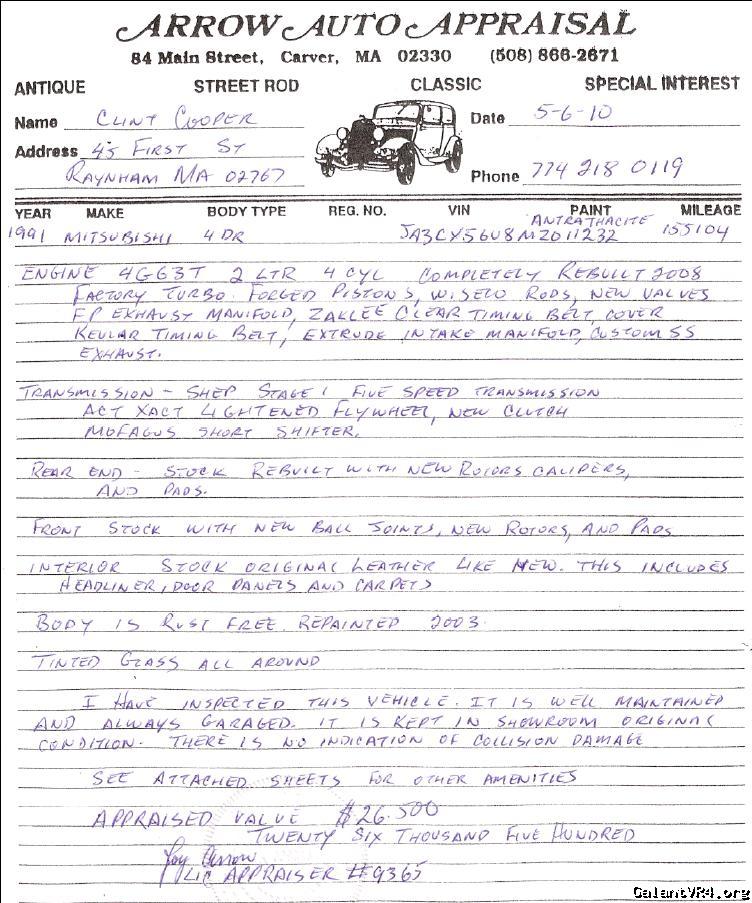 ARROW AUTO APPRAISAL
84 Main Street, Carver, MA 02330 (508) 866-2671
ANTIQUE STREET ROD CLASSIC SPECIAL INTEREST
Name CLINT COOPER Date 5-6-10
Address 45 FIRST ST
RAYNHAM MA 02767 Phone 774 218 0119
YEAR MAKE BODY TYPE REG. NO. VIN PAINT MILEAGE
ANTRATHACITE
1991 MITSUBISHI 4 DR JA3CX56U8MZ011232 155104
ENGINE 4G63T 2 LTR 4 CYL COMPLETELY REBUILT 2008
FACTORY TURBO. FORGED PISTONS, WISECO RODS, NEW VALVES
FP EXHAUST MANIFOLD, ZAKLEE CLEAR TIMING BELT COVER
KEVLAR TIMING BELT, EXTRUDE INTAKE MANIFOLD, CUSTOM SS
EXHAUST.
TRANSMISSION - SHEP STAGE 1 FIVE SPEED TRANSMISSION
ACT XACT LIGHTENED FLYWHEEL, NEW CLUTCH
MOFAGUS SHORT SHIFTER.
REAR END - STOCK REBUILT WITH NEW ROTORS CALIPERS,
AND PADS.
FRONT STOCK WITH NEW BALL JOINTS, NEW ROTORS, AND PADS
INTERIOR STOCK ORIGINAL LEATHER LIKE NEW. THIS INCLUDES
HEADLINER, DOOR PANELS AND CARPETS
BODY IS RUST FREE. REPAINTED 2003.
TINTED GLASS ALL AROUND
I HAVE INSPECTED THIS VEHICLE. IT IS WELL MAINTAINED
AND ALWAYS GARAGED. IT IS KEPT IN SHOWROOM ORIGINAL
CONDITION. THERE IS NO INDICATION OF COLLISION DAMAGE
SEE ATTACHED SHEETS FOR OTHER AMENITIES
APPRAISED VALUE $26.500
TWENTY SIX THOUSAND FIVE HUNDRED
Roy Arrow
LIC APPRAISER #9365
GalantVR4.org